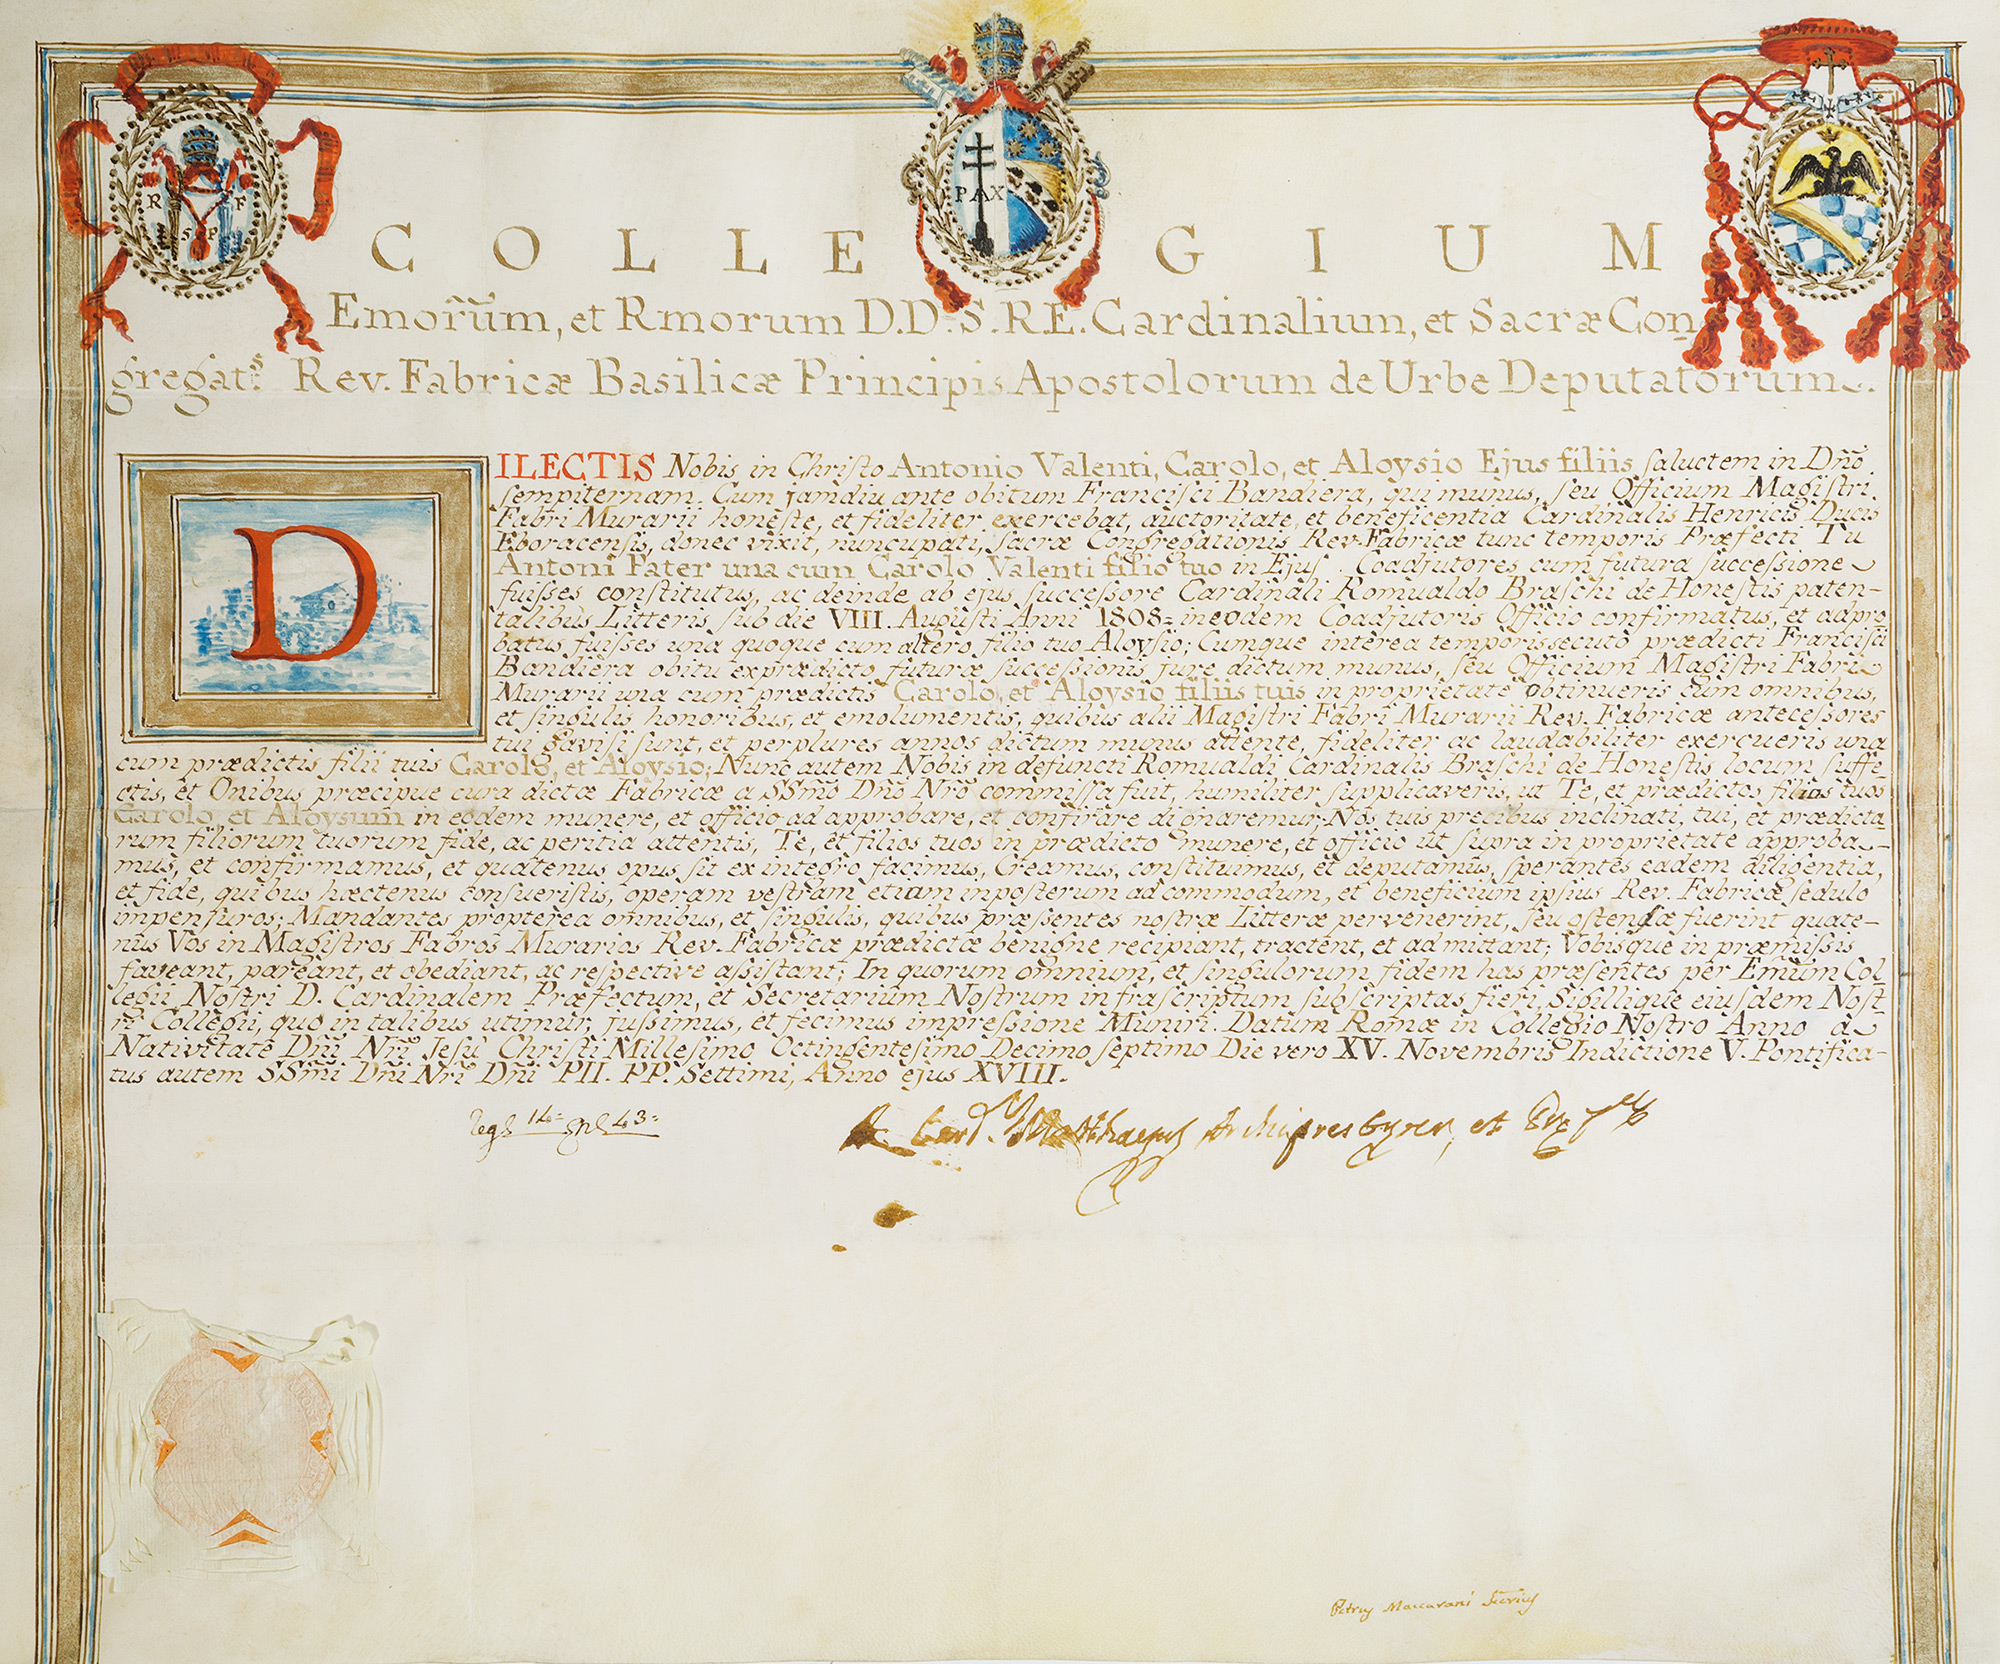 R F
S P
PAX
COLLEGIUM
Emor̃um, et Rmorum D.D. S.R.E. Cardinalium, et Sacræ Con
gregat.s Rev. Fabricæ Basilicæ Principis Apostolorum de Urbe Deputatorum.
DILECTIS Nobis in Christo Antonio Valenti, Carolo, et Aloysio Ejus filiis salutem in Dño
sempiternam. Cum jamdiu ante obitum Francisci Bandiera, qui munus, seu Officium Magistri
Fabri Murarii honeste, et fideliter exercebat, auctoritate, et beneficentia Cardinalis Henricis Ducis
Eboracensis, donec vixit, nuncupati, sacræ Congregationis Rev. Fabricæ tunc temporis Præfecti Tu
Antoni Pater una cum Carolo Valenti filio tuo in Ejus Coadjutores cum futura successione
fuisses constitutus, ac deinde ab ejus successore Cardinali Romualdo Braschi de Honestis paten-
talibus Litteris sub die VIII. Augusti Anni 1808 = in eodem Coadjutoris Officio confirmatus, et adpro
batus fuisses unà quoque cum altero filio tuo Aloysio; Cumque interea temporis secuto prædicti Francisci
Bandiera obitu ex prædicto futuræ successionis jure dictum munus, seu Officium Magistri Fabri
Murarii una cum prædictis Carolo, et Aloysio filiis tuis in proprietate obtinueris cum omnibus,
et singulis honoribus, et emolumentis, quibus alii Magistri Fabri Murarii Rev. Fabricæ antecessores
tui gavisi sunt, et perplures annos dictum munus attente, fideliter ac laudabiliter exercueris una
cum prædictis filii tuis Carolo, et Aloysio; Nunc autem Nobis in defuncti Romualdi Cardinalis Braschi de Honestis locum suffe-
ctis, et Onibus præcipue cura dictæ Fabricæ a SSmõ Dñõ Nrõ commissa fuit, humiliter supplicaveris, ut Te, et prædictos filios tuos
Carolo, et Aloysum in eodem munere, et officio adapprobare, et confirare dignaremur Nos tuis precibus inclinati, tui, et prædicta-
rum filiorum tuorum fide, ac peritia attentis, Te, et filios tuos in prædicto munere, et officio ut supra in proprietate approba-
mus, et confirmamus, et quatenus opus sit ex integro facimus, Creamus, constituimus, et deputamus, sperantes eadem diligentia,
et fide, quibus hæctenus consueristis, operam vestram etiam inposterum ad commodum, et beneficium ipsius Rev. Fabricæ sedulo
impensuros; Mandantes propterea omnibus, et singulis, quibus præsentes nostræ Litteræ pervenerint, seu ostensæ fuerint quate-
nus Vos in Magistros Fabros Murarios Rev. Fabricæ prædictæ benigne recipiant, tractent, et admittant; Vobisque in præmissis
faveant, pareant, et obediant, ac respective assistant; In quorum omnium, et singulorum fidem has præsentes per Emũm Col-
legii Nostri D. Cardinalem Præfectum, et Secretarium Nostrum infrascriptum subscriptas fieri, Sigillique ejusdem Nost-
ri Collegii, quo in talibus utimur, jussimus, et fecimus impressione Muniri. Datum Romæ in Collegio Nostro Anno à
Nativitate Dñi Nrĩ Jesù Christi Millesimo Octingentesimo Decimo septimo Die vero XV. Novembris Indictione V. Pontifica-
tus autem SSmĩ Dñi Nrĩ Dñi PII. PP. Settimi, Anno ejus XVIII.
14= 43=
Card. Matthaejus Archipresbyter, et
Petrus Maccarani